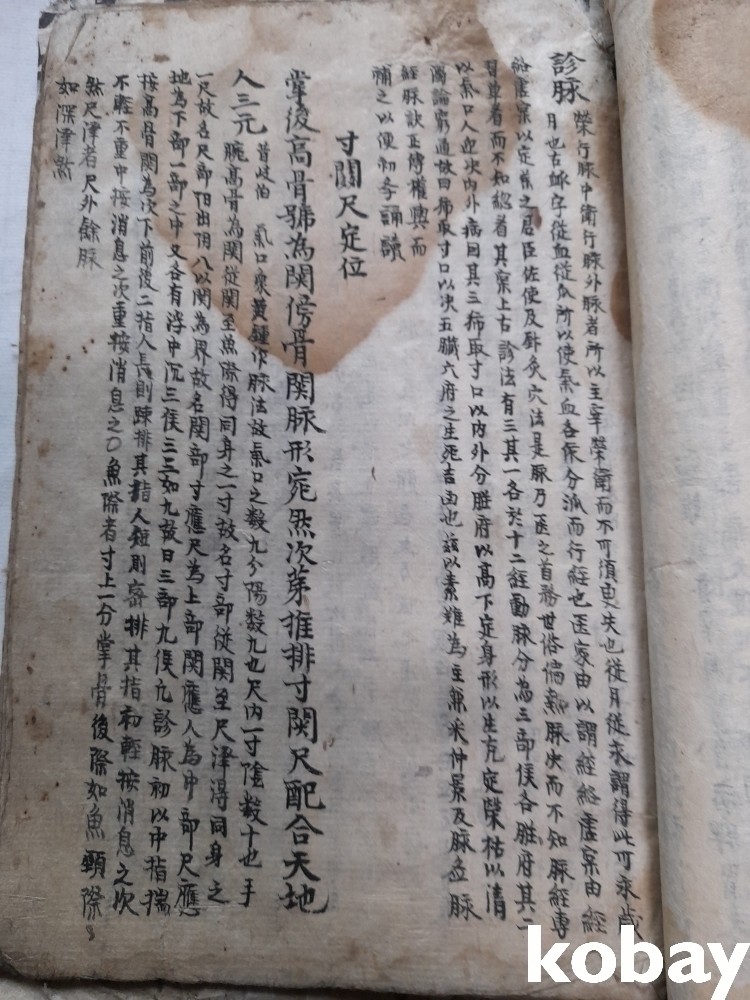 診脉
榮行脉中衛行脉外脉者所以主宰榮衛而不可須臾失也從月從永謂得此可永歲
月也古 字從血從 所以使氣血各依分派而行經也医家由以謂經絡虛宲由 經
絡虛宲以定 之君臣佐使及針灸穴法是脉乃医之首務世俗偏熟脉决而不知脉經專
習 者而不知 着其宲上古診法有三其一各於十二經動脉分為三部侯各脏府其二
以氣口人迎决內外病因其三 取寸口以內外分脏府以高下定身形以生克定榮枯以清
濁論窮通故曰 取寸口以决五臟六府之生死吉凶也玆以素難為主兼采仲景及脉 脉
經脉訣正傳權輿而
補之以便初孝誦讀
寸關尺定位
掌後高骨號為関傍骨関脉形宛然次第推排寸関尺配合天地
人三元
昔岐伯 氣口 黄鍾作脉法故氣口之数九分陽数九也尺內一寸陰数十也手
腕高骨為関從関至魚際得同身之一寸故名寸部從関至尺澤得同身之
一尺故名尺部陽出陰八以関為界故名関部寸應尺為上部関應人為中部尺應
地為下部一部之中又各有浮中沉三侯三三如九故曰三部九侯凢診脉初以中指揣
按高骨関為次下前後二指人長則踈排其指人短則宻排其指初輕按消息之次
不輕不重中按消息之次重按消息之〇魚際者寸上一分掌骨後際如魚頸際
然尺澤者尺外餘脉
如深澤然
kobay